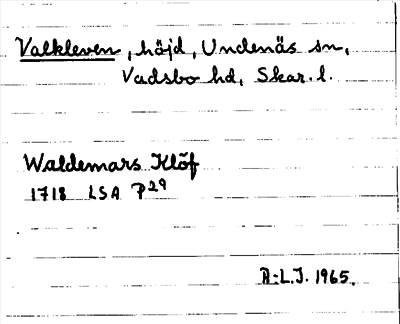 Valkleven, höjd, Undenäs sn,
Vadsbo hd, Skar. l.
Waldemars Klöf
1718 LSA P29
A-L.J. 1965.